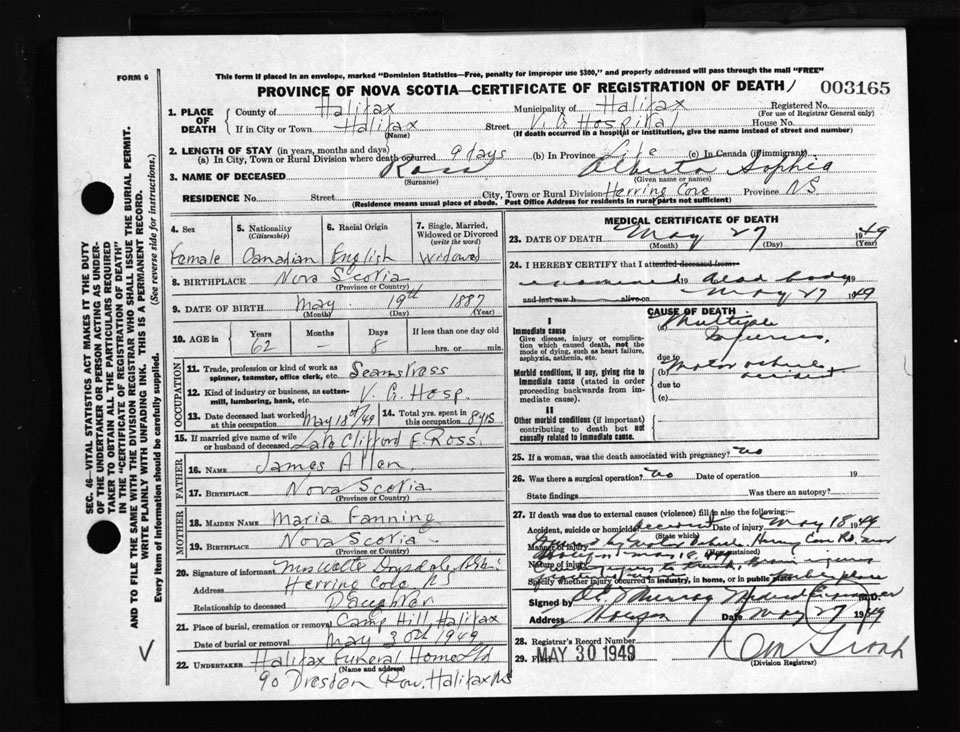 FORM 6
This form if placed in an envelope, marked "Dominion Statistics—Free, penalty for improper use $300," and properly addressed will pass through the mail "FREE"
PROVINCE OF NOVA SCOTIA—CERTIFICATE OF REGISTRATION OF DEATH
003165
SEC. 46—VITAL STATISTICS ACT MAKES IT THE DUTY
OF THE UNDERTAKER OR PERSON ACTING AS UNDER-
TAKER TO OBTAIN ALL THE PARTICULARS REQUIRED
IN THE "CERTIFICATE OF REGISTRATION OF DEATH"
AND TO FILE THE SAME WITH THE DIVISION REGISTRAR WHO SHALL ISSUE THE BURIAL PERMIT.
WRITE PLAINLY WITH UNFADING INK. THIS IS A PERMANENT RECORD.
Every item of information should be carefully supplied. (See reverse side for instructions.)
1. PLACE OF DEATH
County of Halifax Municipality of Halifax Registered No.
(For use of Registrar General only)
If in City or Town Halifax Street V. G. Hospital House No.
(Name) (If death occurred in a hospital or institution, give the name instead of street and number)
2. LENGTH OF STAY (in years, months and days)
(a) In City, Town or Rural Division where death occurred 9 days (b) In Province Life (c) In Canada (if immigrant)
3. NAME OF DECEASED Ross Alberta Sophia
(Surname) (Given name or names)
RESIDENCE No. Street City, Town or Rural Division Herring Cove Province N.S.
(Residence means usual place of abode. Post Office Address for residents in rural parts not sufficient)
4. Sex Female
5. Nationality (Citizenship) Canadian
6. Racial Origin English
7. Single, Married, Widowed or Divorced (write the word) Widowed
8. BIRTHPLACE Nova Scotia
(Province or Country)
9. DATE OF BIRTH May 19th 1887
(Month) (Day) (Year)
10. AGE in Years 62 Months - Days 8 If less than one day old hrs. or min.
OCCUPATION
11. Trade, profession or kind of work as spinner, teamster, office clerk, etc. Seamstress
12. Kind of industry or business, as cotton-mill, lumbering, bank, etc. V. G. Hosp.
13. Date deceased last worked at this occupation May 18th/49 14. Total yrs. spent in this occupation 8 yrs
15. If married give name of wife or husband of deceased Late Clifford F. Ross
FATHER
16. NAME James Allen
17. BIRTHPLACE Nova Scotia
(Province or Country)
MOTHER
18. MAIDEN NAME Maria Fanning
19. BIRTHPLACE Nova Scotia
(Province or Country)
20. Signature of informant Mrs Walter
Address Herring Cove NS
Relationship to deceased Daughter
21. Place of burial, cremation or removal Camp Hill, Halifax
Date of burial or removal May 30th 1949
22. UNDERTAKER Halifax Funeral Home Ltd
(Name and address)
90 Dresden Row, Halifax NS
MEDICAL CERTIFICATE OF DEATH
23. DATE OF DEATH May 27 1949
(Month) (Day) (Year)
24. I HEREBY CERTIFY that I attended deceased from
examined 19 dead body 19
and last saw h alive on May 27 1949
CAUSE OF DEATH
I
Immediate cause
Give disease, injury or complication which caused death, not the mode of dying, such as heart failure, asphyxia, asthenia, etc.
(a) Multiple injuries
due to
Morbid conditions, if any, giving rise to immediate cause (stated in order proceeding backwards from immediate cause).
(b) Motor vehicle accident
due to
(c)
II
Other morbid conditions (if important) contributing to death but not causally related to immediate cause.
25. If a woman, was the death associated with pregnancy? no
26. Was there a surgical operation? no Date of operation 19
State findings Was there an autopsy?
27. If death was due to external causes (violence) fill in also the following:
Accident, suicide or homicide? accident Date of injury May 18 1949
(State which)
Manner of injury Motor Vehicle, Herring Cove Rd. near
(How sustained)
Nature of injury brain injuries
Specify whether injury occurred in industry, in home, or in public place
Signed by Murray Medical Examiner M.D.
Address Date May 27 1949
28. Registrar's Record Number
29. MAY 30 1949
(Division Registrar)